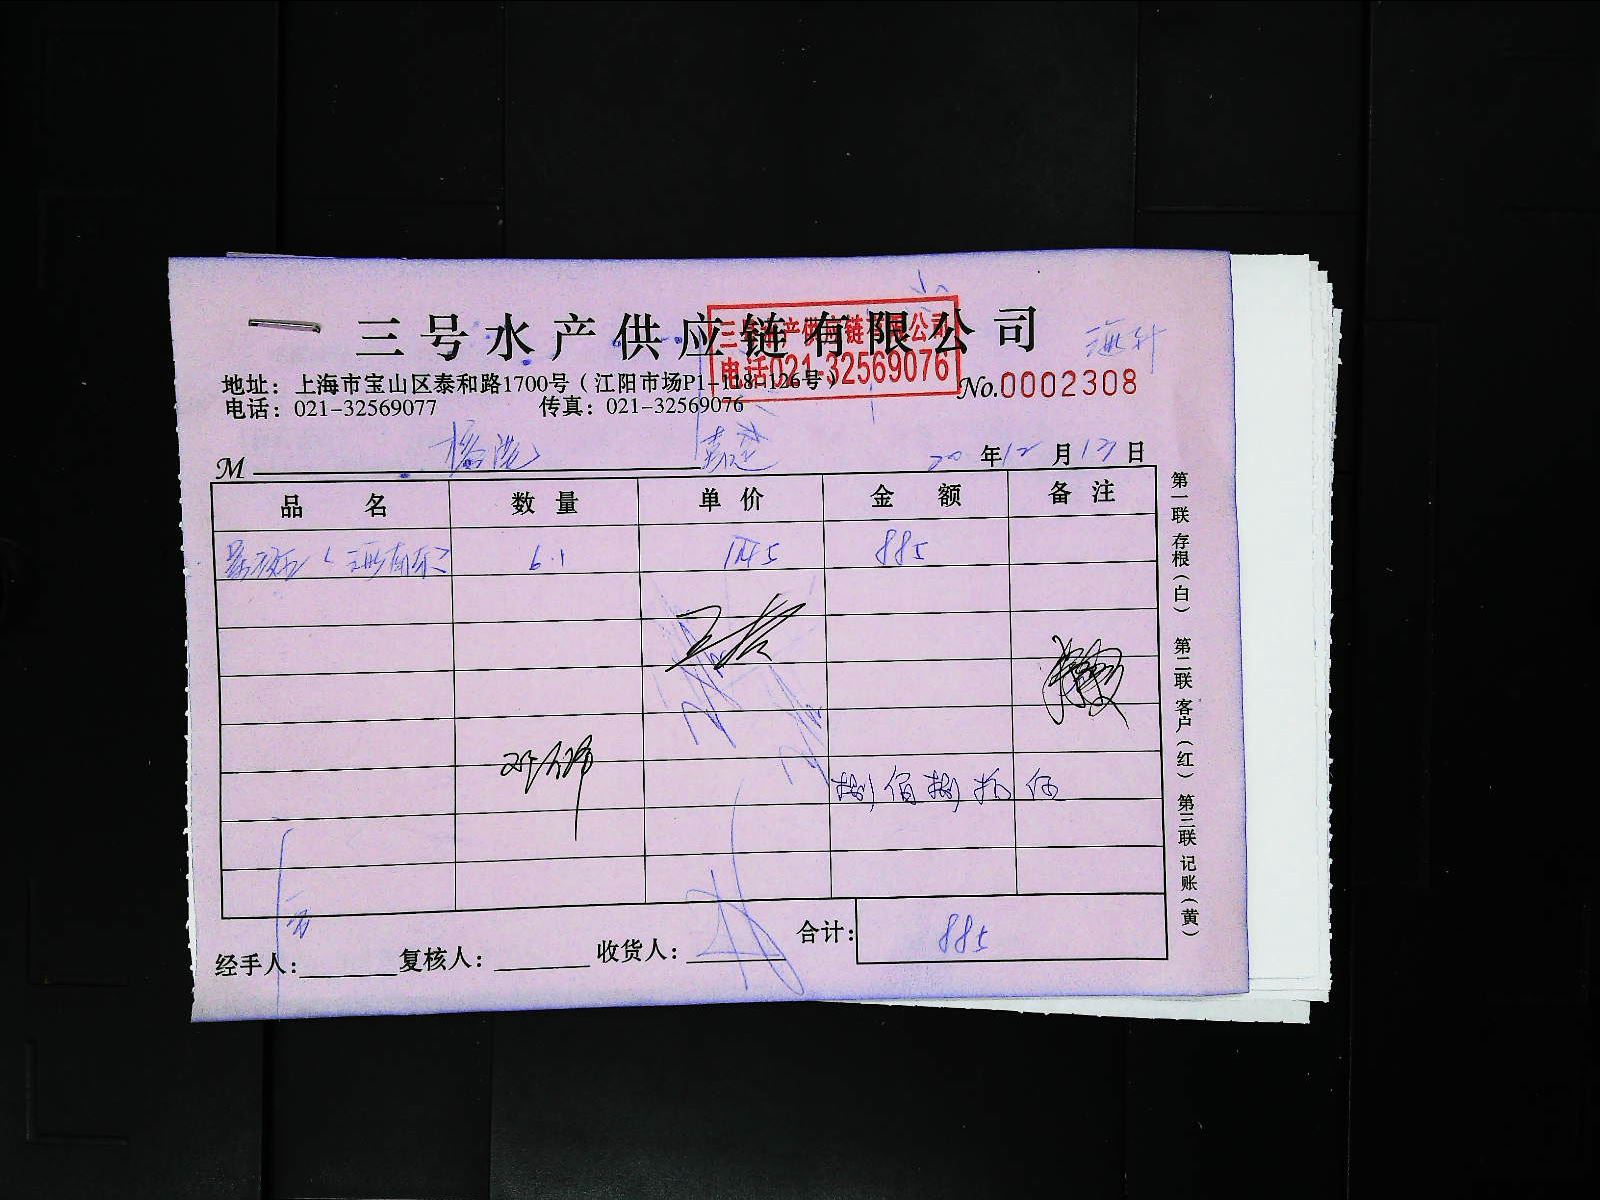 三号水产供应链有限公司
三号水产供应链有限公司
电话021-32569076
地址：上海市宝山区泰和路1700号（江阳市场P1-118-126号）
No.0002308
电话：021-32569077 传真：021-32569076
M 20年12月13日
品名 数量 单价 金额 备注
6.1 145 885
捌佰捌拾伍
合计：885
经手人： 复核人： 收货人：
第一联 存根（白） 第二联 客户（红） 第三联 记账（黄）